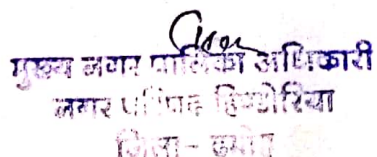 मुख्य नगर पालिका अधिकारी
नगर परिषद हिण्डोरिया
जिला - दमोह